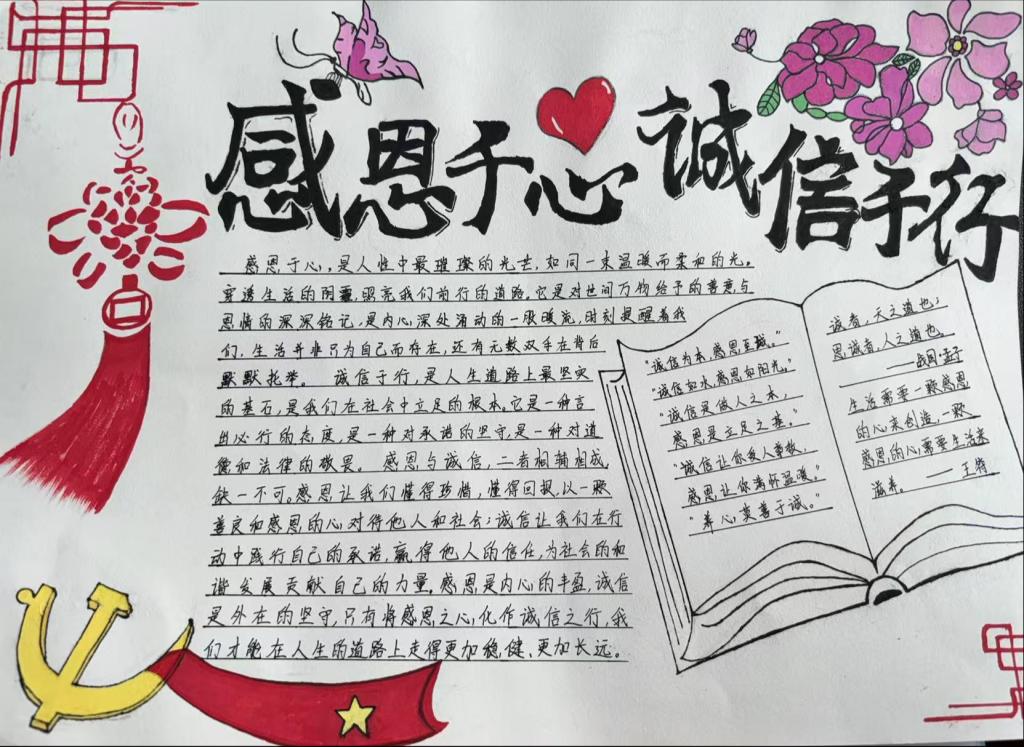 感恩于心 诚信于行
感恩于心,是人性中最璀璨的光芒,如同一束温暖而柔和的光。
穿透生活的阴霾,照亮我们前行的道路。它是对世间万物给予的善意与
恩情的深深铭记,是内心深处涌动的一股暖流,时刻提醒着我
们,生活并非只为自己而存在,还有无数双手在背后
默默托举。 诚信于行,是人生道路上最坚实
的基石,是我们在社会中立足的根本。它是一种言
出必行的态度,是一种对承诺的坚守,是一种对道
德和法律的敬畏。 感恩与诚信,二者相辅相成,
缺一不可。感恩让我们懂得珍惜,懂得回报,以一颗
善良和感恩的心对待他人和社会;诚信让我们在行
动中践行自己的承诺,赢得他人的信任,为社会的和
谐发展贡献自己的力量。感恩是内心的丰盈,诚信
是外在的坚守,只有将感恩之心,化作诚信之行,我
们才能在人生的道路上走得更加稳健、更加长远。
"诚信为本,感恩至诚。"
"诚信如水,感恩如阳光。"
"诚信是做人之本,
感恩是立足之基。"
"诚信让你受人尊敬,
感恩让你满怀温暖。"
"养心莫善于诚。"
诚者,天之道也;
思诚者,人之道也。
——战国·孟子
生活需要一颗感恩
的心来创造,一颗
感恩的心需要生活来
滋养。 ——王符